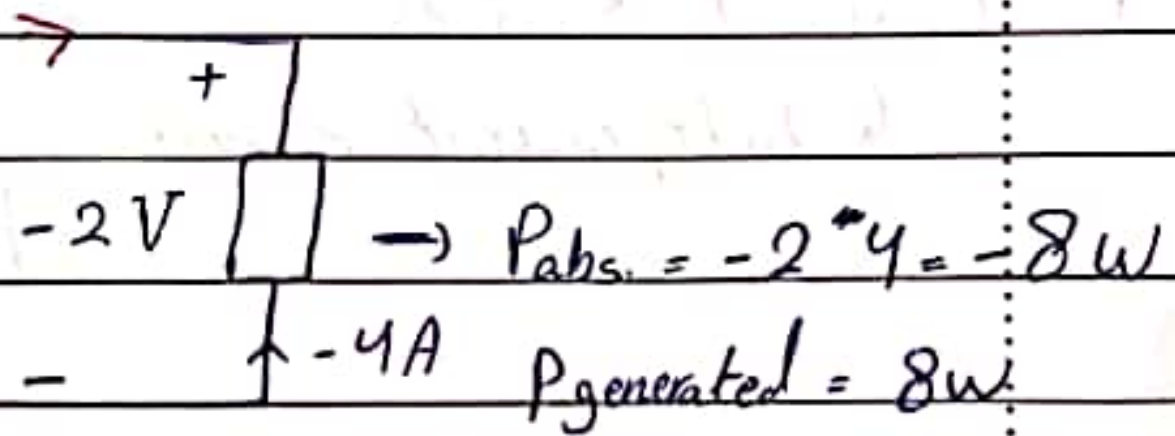 +
-2 V → Pabs. = -2*4 = -8 w
-4A
- Pgenerated = 8w